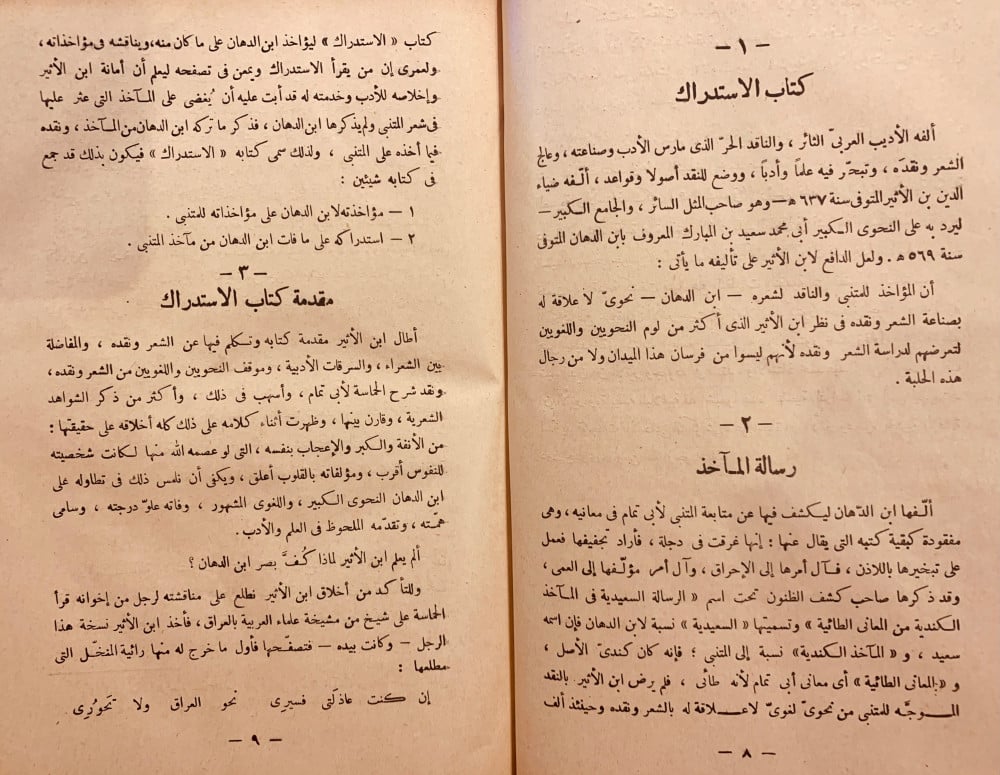 — ١ —
كتاب الاستدراك
ألفه الأديب العربىّ الثائر ، والناقد الحرّ الذى مارس الأدب وصناعته ، وعالج
الشعر ونقدَه ، وتبحّر فيه علماً وأدباً ، ووضع للنقد أصولا وقواعد ، ألّفه ضياء
الدين بن الأثير المتوفى سنة ٦٣٧ ه‍ — وهو صاحب المثل السائر ، والجامع الكبير —
ليرد به على النحوى الكبير أبى محمد سعيد بن المبارك المعروف بابن الدهان المتوفى
سنة ٥٦٩ ه‍ . ولعل الدافع لابن الأثير على تأليفه ما يأتى :
أن المؤاخذ للمتنبى والناقد لشعره — ابن الدهان — نحوىّ لا علاقة له
بصناعة الشعر ونقده فى نظر ابن الأثير الذى أكثر من لوم النحويين واللغويين
لتعرضهم لدراسة الشعر ونقده لأنهم ليسوا من فرسان هذا الميدان ولا من رجال
هذه الحلبة .
— ٢ —
رسالة المـآخذ
ألّـفها ابن الدّهان ليـكشف فيها عن متابعة المتنبى لأبى تمام فى معانيه ، وهى
مفقودة كبقية كتبه التى يقال عنها : إنها غرقت فى دجلة ، فأراد تجفيفها فعمل
على تبخيرها باللاذن ، فـآل أمرها إلى الإحراق ، وآل أمر مؤلّـفها إلى العمى ،
وقد ذكرها صاحب كشف الظنون تحت اسم « الرسالة السعيدية فى المـآخذ
الكندية من المعانى الطائية » وتسميتها « السعيدية » نسبة لابن الدهان فإن اسمه
سعيد ، و « المـآخذ الكندية » نسبة إلى المتنبى ؛ فإنه كان كندىّ الأصل ،
و « المعانى الطائية » أى معانى أبى تمام لأنه طائى ، فلم يرض ابن الأثير بالنقد
الموجَّـه للمتنبى من نحوىّ لغوىّ لا عـلاقة له بالشعر ونقده وحينئذ ألف
— ٨ —
كتاب « الاستدراك » ليؤاخذ ابن الدهان على ما كان منه ، ويناقشه فى مؤاخذاته ،
ولعمرى إن من يقرأ الاستدراك ويمعن فى تصفحه ليعلم أن أمانة ابن الأثير
وإخلاصه للأدب وخدمته له قد أبت عليه أن يُغضى على المـآخذ التى عثر عليها
فى شعر المتنبى ولم يذكرها ابن الدهان ، فذكر ما تركه ابن الدهان من المـآخذ ، ونقده
فيما أخذه على المتنبى ، ولذلك سمى كتابه « الاستدراك » فيكون بذلك قد جمع
فى كتابه شيئين :
١ — مؤاخذته لابن الدهان على مؤاخذاته للمتنبى .
٢ — استدراكه على ما فات ابن الدهان من مآخذ المتنبى .
— ٣ —
مقدمة كتاب الاستدراك
أطال ابن الأثير مقدمة كتابه وتكلم فيها عن الشعر ونقده ، والمفاضلة
بين الشعراء ، والسرقات الأدبية ، وموقف النحويين واللغويين من الشعر ونقده ،
ونقد شرح الحماسة لأبى تمام ، وأسهب فى ذلك ، وأكثر من ذكر الشواهد
الشعرية ، وقارن بينها ، وظهرت أثناء كلامه على ذلك كله أخلاقه على حقيقتها :
من الأنفة والكبر والإعجاب بنفسه ، التى لو عصمه الله منها لـكانت شخصيته
للنفوس أقرب ، ومؤلفاته بالقلوب أعلق ، ويكفى أن نلمس ذلك فى تطاوله على
ابن الدهان النحوى الكبير ، واللغوى المشهور ، وفاته علوّ درجته ، وسامى
همّـته ، وتقدّمه الملحوظ فى العلم والأدب .
ألم يعلم ابن الأثير لماذا كُـفَّ بصر ابن الدهان ؟
وللتأكد من أخلاق ابن الأثير نطلع على مناقشته لرجل من إخوانه قرأ
الحماسة على شيخ من مشيخة علماء العربية بالعراق ، فأخذ ابن الأثير نسخة هذا
الرجل — وكانت بيده — فتصفّـحها فأول ما خرج له منها رائية المنخّـل التى
مطلعها :
إن كنت عاذلتى فسيرى نحو العراق ولا تَحُورِى
— ٩ —